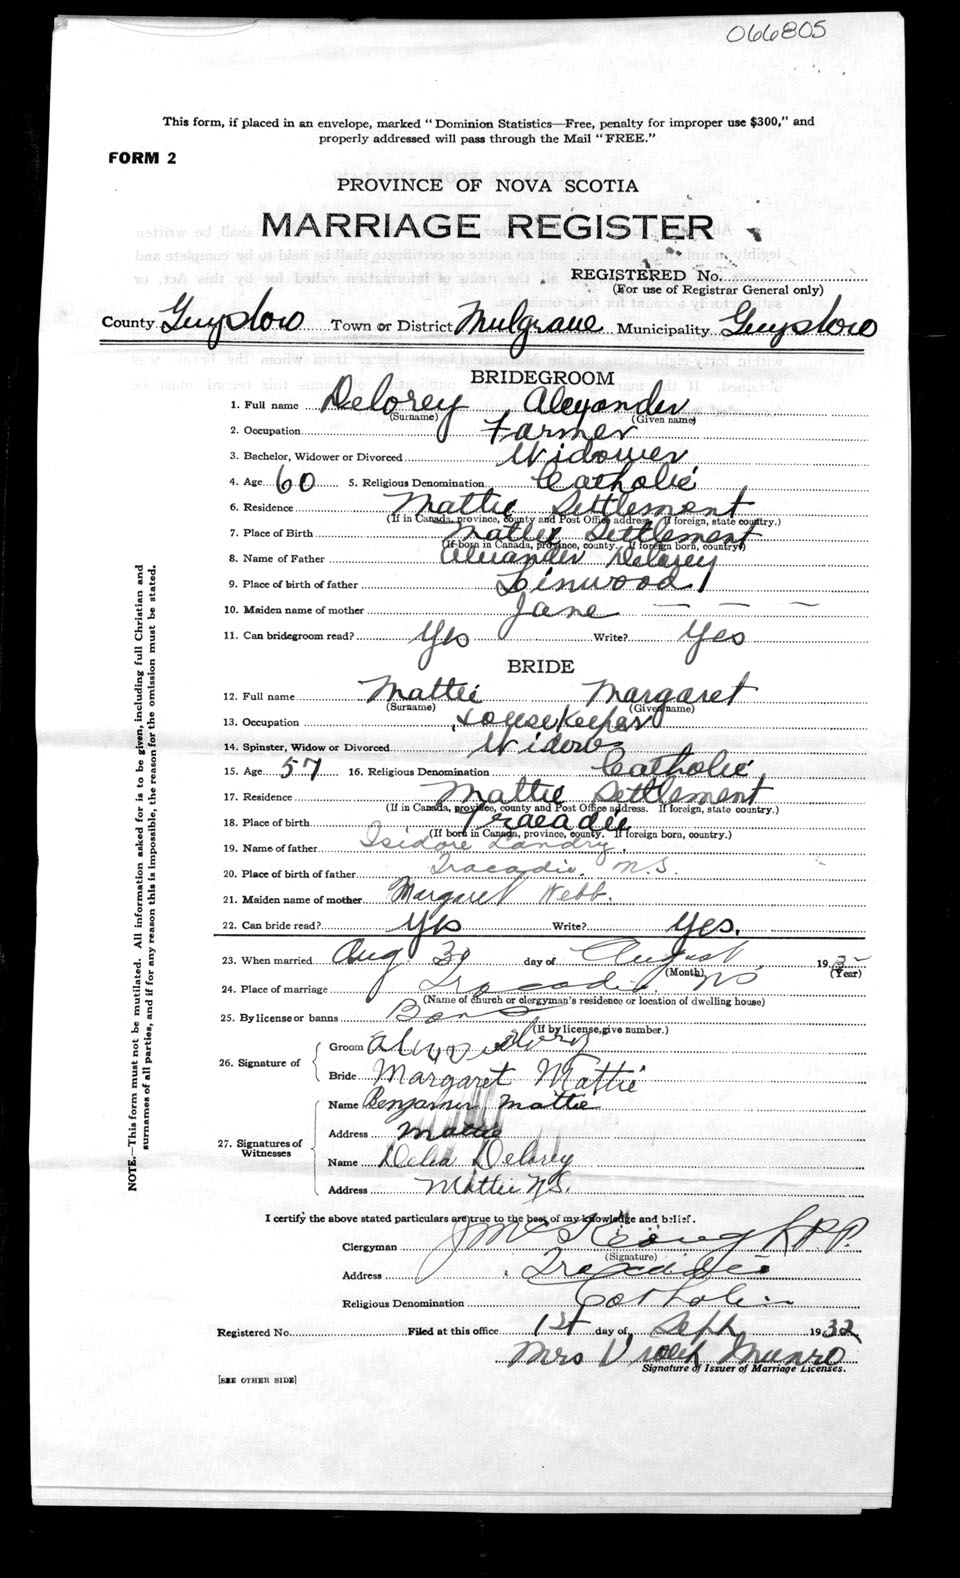 066805
This form, if placed in an envelope, marked "Dominion Statistics—Free, penalty for improper use $300," and
properly addressed will pass through the Mail "FREE."
FORM 2
PROVINCE OF NOVA SCOTIA
MARRIAGE REGISTER
REGISTERED No.
(For use of Registrar General only)
County Guysboro Town or District Mulgrave Municipality Guysboro
BRIDEGROOM
1. Full name Delorey, Alexander
(Surname) (Given name)
2. Occupation Farmer
3. Bachelor, Widower or Divorced Widower
4. Age 60 5. Religious Denomination Catholic
6. Residence Mattie Settlement
(If in Canada, province, county and Post Office address. If foreign, state country.)
7. Place of Birth Mattie Settlement
(If born in Canada, province, county. If foreign born, country)
8. Name of Father Alexander Delorey
9. Place of birth of father Linwood
10. Maiden name of mother Jane — — —
11. Can bridegroom read? Yes Write? Yes
BRIDE
12. Full name Mattie Margaret
(Surname) (Given name)
13. Occupation Housekeeper
14. Spinster, Widow or Divorced Widow
15. Age 57 16. Religious Denomination Catholic
17. Residence Mattie Settlement
(If in Canada, province, county and Post Office address. If foreign, state country.)
18. Place of birth Tracadie
(If born in Canada, province, county. If foreign born, country.)
19. Name of father Isidore Landry.
20. Place of birth of father Tracadie. N.S.
21. Maiden name of mother Margaret Webb.
22. Can bride read? Yes Write? Yes.
23. When married Aug. 30 day of August 1932
(Month) (Year)
24. Place of marriage Tracadie NS
(Name of church or clergyman's residence or location of dwelling house)
25. By license or banns Bans
(If by license, give number.)
26. Signature of
Groom
Bride Margaret Mattie
27. Signatures of Witnesses
Name Benjamin Mattie
Address Mattie
Name Delia Delorey
Address Mattie N.S.
I certify the above stated particulars are true to the best of my knowledge and belief.
Clergyman J McKeough P.P.
(Signature)
Address Tracadie
Religious Denomination Catholic
Registered No. Filed at this office 1st day of Sept 1932
Mrs Munro
Signature of Issuer of Marriage Licenses.
[SEE OTHER SIDE]
NOTE.—This form must not be mutilated. All information asked for is to be given, including full Christian and
surnames of all parties, and if for any reason this is impossible, the reason for the omission must be stated.